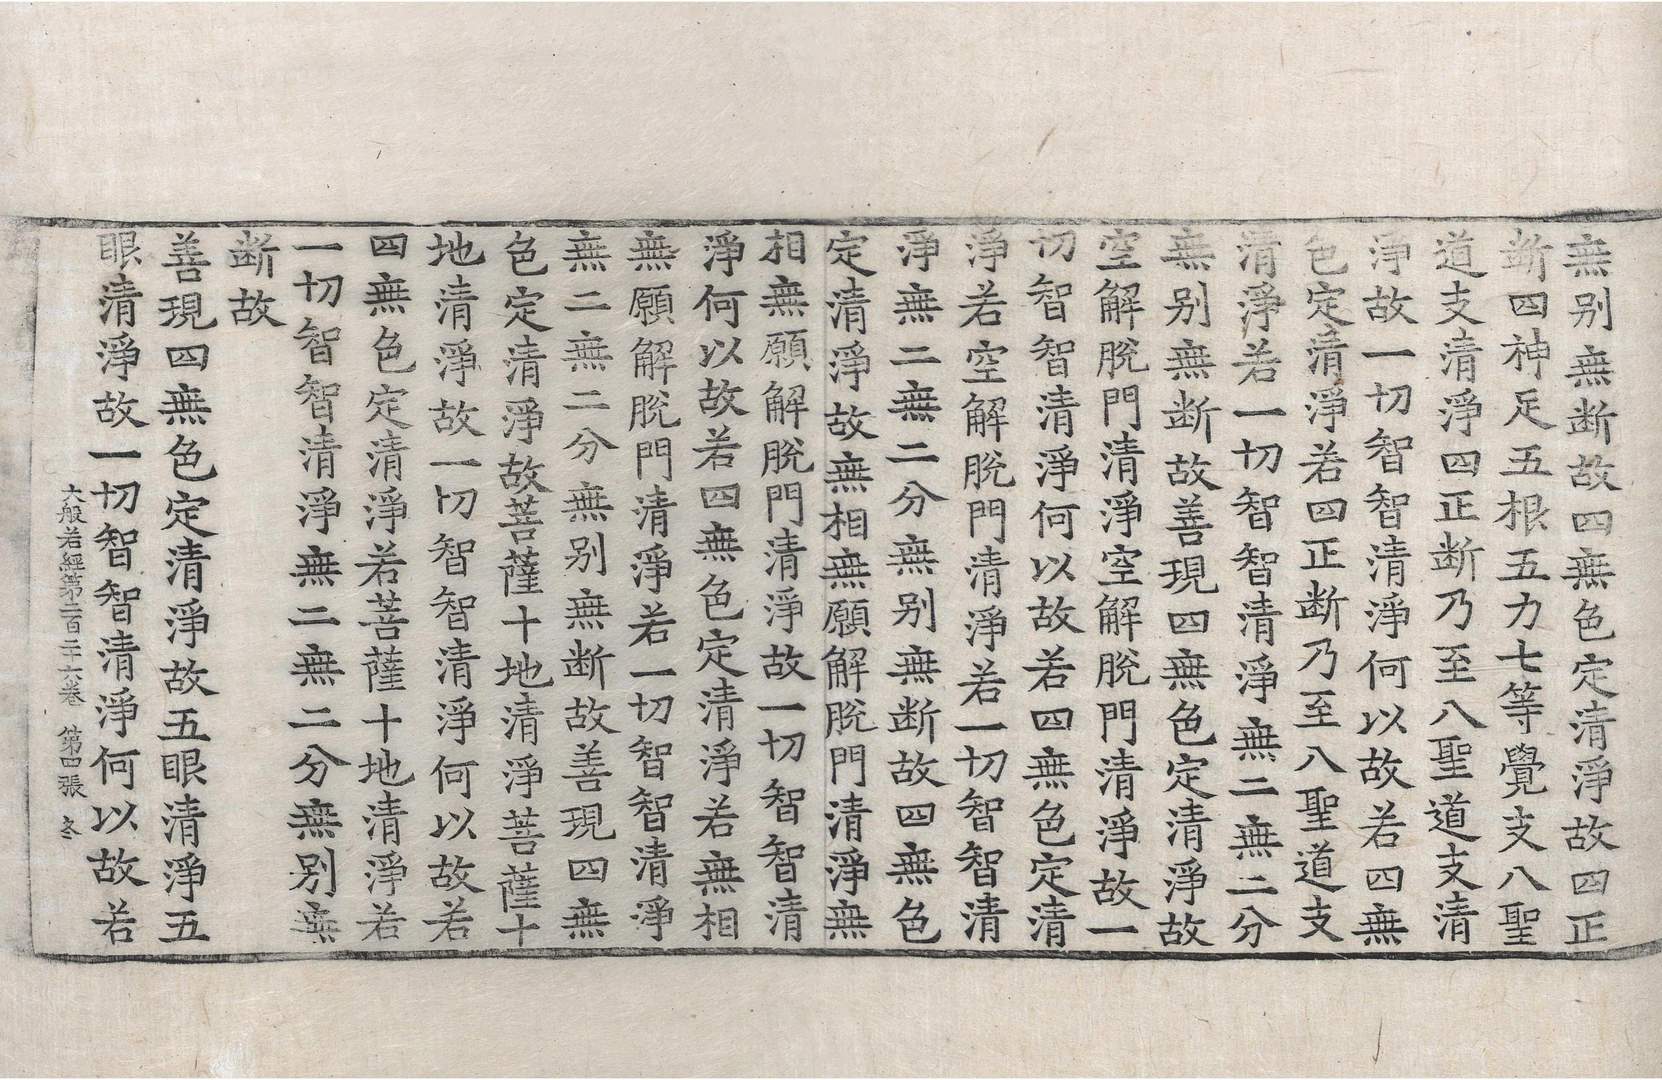 無别無断故四無色定清淨故四正
断四神足五根五力七等覺支八聖
道支清淨四正断乃至八聖道支清
淨故一切智智清淨何以故若四無
色定清淨若四正断乃至八聖道支
清淨若一切智智清淨無二無二分
無别無断故善現四無色定清淨故
空解脫門清淨空解脫門清淨故一
切智智清淨何以故若四無色定清
淨若空解脫門清淨若一切智智清
淨無二無二分無别無断故四無色
定清淨故無相無願解脫門清淨無
相無願解脫門清淨故一切智智清
淨何以故若四無色定清淨若無相
無願解脫門清淨若一切智智清淨
無二無二分無别無断故善現四無
色定清淨故菩薩十地清淨菩薩十
地清淨故一切智智清淨何以故若
四無色定清淨若菩薩十地清淨若
一切智智清淨無二無二分無别無
断故
善現四無色定清淨故五眼清淨五
眼清淨故一切智智清淨何以故若
大般若經第二百二十六卷 第四張 冬